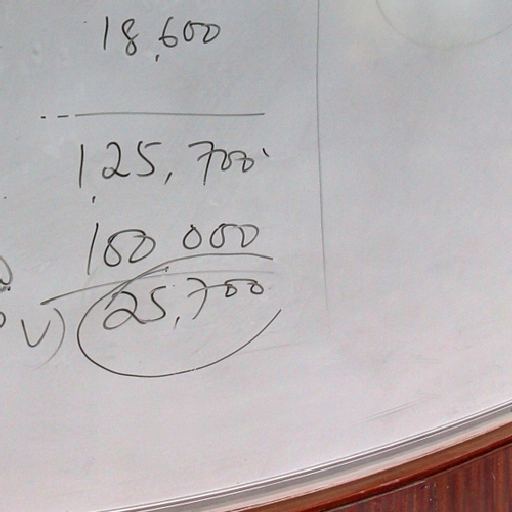 18,600
125,700
100 000
V) 25,700